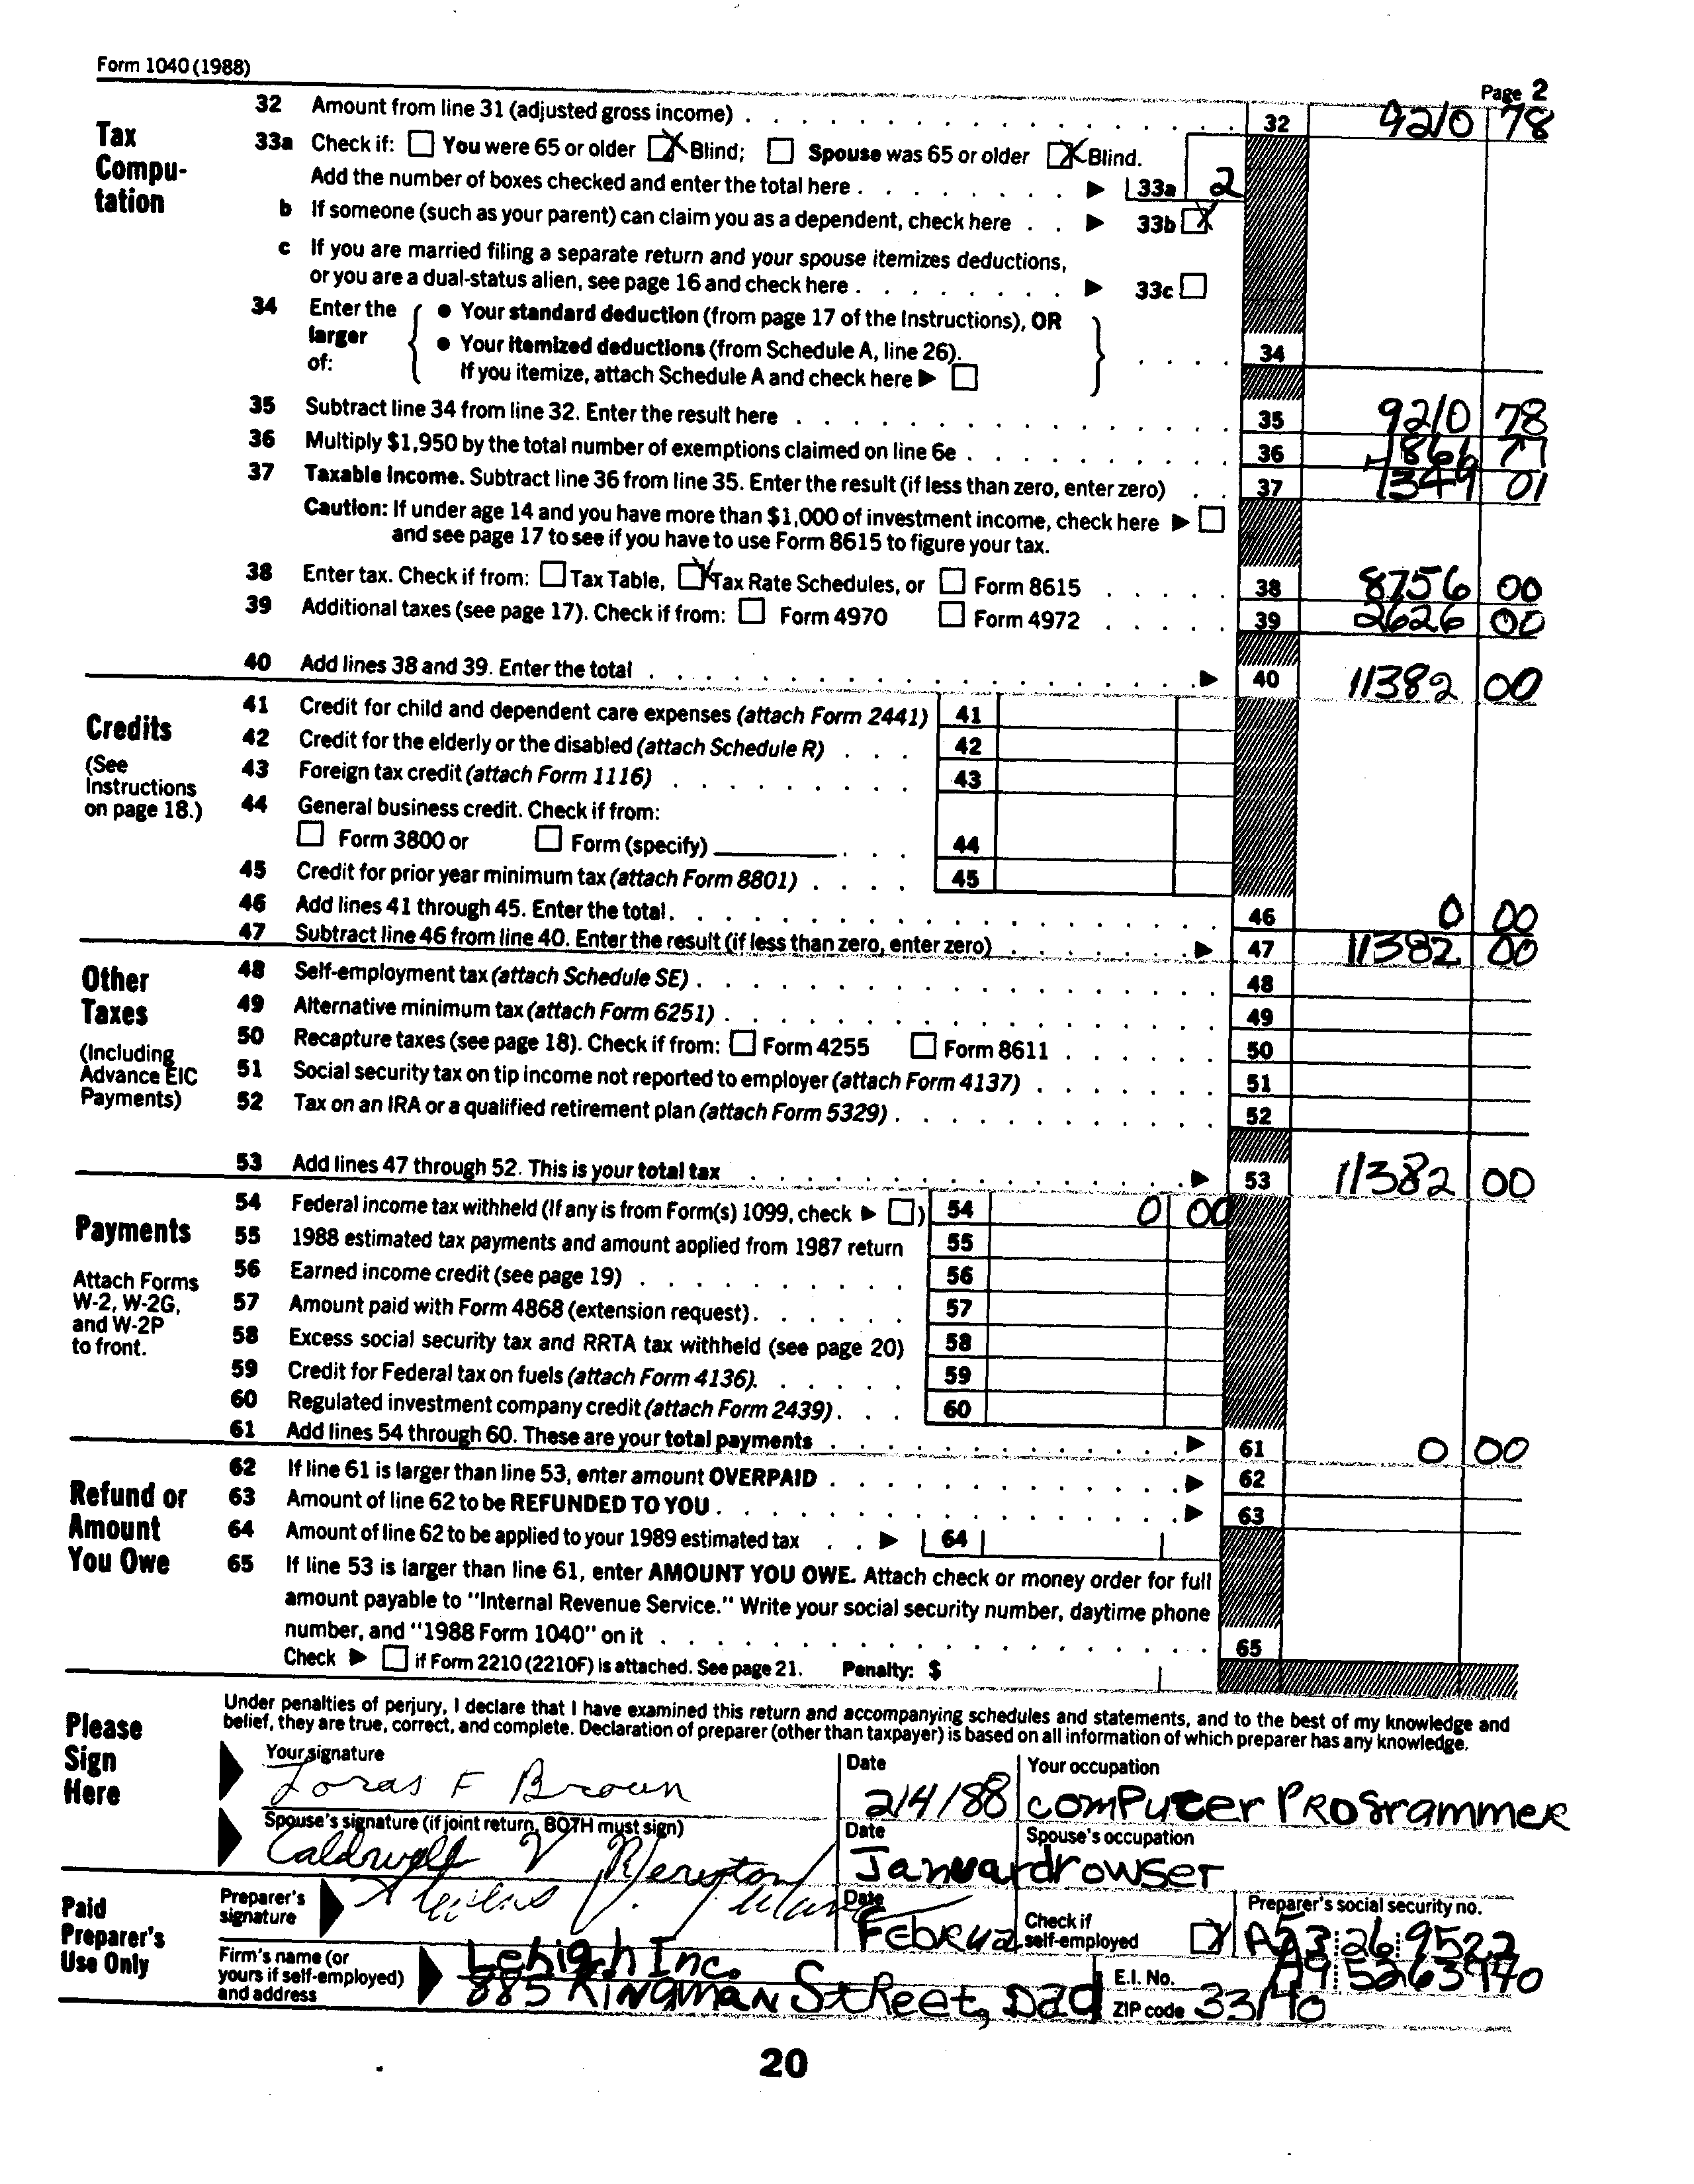 Form 1040 (1988)
Page 2
Tax Compu-
tation
32 Amount from line 31 (adjusted gross income) 32 9210 78
33a Check if: You were 65 or older Blind; Spouse was 65 or older Blind.
Add the number of boxes checked and enter the total here 33a 2
b If someone (such as your parent) can claim you as a dependent, check here 33b
c If you are married filing a separate return and your spouse itemizes deductions,
or you are a dual-status alien, see page 16 and check here 33c
34 Enter the larger of:
• Your standard deduction (from page 17 of the Instructions), OR
• Your itemized deductions (from Schedule A, line 26).
If you itemize, attach Schedule A and check here 34
35 Subtract line 34 from line 32. Enter the result here 35 9210 78
36 Multiply $1,950 by the total number of exemptions claimed on line 6e 36 77
37 Taxable income. Subtract line 36 from line 35. Enter the result (if less than zero, enter zero) 37 01
Caution: If under age 14 and you have more than $1,000 of investment income, check here
and see page 17 to see if you have to use Form 8615 to figure your tax.
38 Enter tax. Check if from: Tax Table, Tax Rate Schedules, or Form 8615 38 8756 00
39 Additional taxes (see page 17). Check if from: Form 4970 Form 4972 39 2626 00
40 Add lines 38 and 39. Enter the total 40 11382 00
Credits
(See
Instructions
on page 18.)
41 Credit for child and dependent care expenses (attach Form 2441) 41
42 Credit for the elderly or the disabled (attach Schedule R) 42
43 Foreign tax credit (attach Form 1116) 43
44 General business credit. Check if from:
Form 3800 or Form (specify) 44
45 Credit for prior year minimum tax (attach Form 8801) 45
46 Add lines 41 through 45. Enter the total 46 0 00
47 Subtract line 46 from line 40. Enter the result (if less than zero, enter zero) 47 11382 00
Other
Taxes
(Including
Advance EIC
Payments)
48 Self-employment tax (attach Schedule SE) 48
49 Alternative minimum tax (attach Form 6251) 49
50 Recapture taxes (see page 18). Check if from: Form 4255 Form 8611 50
51 Social security tax on tip income not reported to employer (attach Form 4137) 51
52 Tax on an IRA or a qualified retirement plan (attach Form 5329) 52
53 Add lines 47 through 52. This is your total tax 53 11382 00
Payments
Attach Forms
W-2, W-2G,
and W-2P
to front.
54 Federal income tax withheld (If any is from Form(s) 1099, check ) 54 0 00
55 1988 estimated tax payments and amount applied from 1987 return 55
56 Earned income credit (see page 19) 56
57 Amount paid with Form 4868 (extension request) 57
58 Excess social security tax and RRTA tax withheld (see page 20) 58
59 Credit for Federal tax on fuels (attach Form 4136) 59
60 Regulated investment company credit (attach Form 2439) 60
61 Add lines 54 through 60. These are your total payments 61 0 00
Refund or
Amount
You Owe
62 If line 61 is larger than line 53, enter amount OVERPAID 62
63 Amount of line 62 to be REFUNDED TO YOU 63
64 Amount of line 62 to be applied to your 1989 estimated tax 64
65 If line 53 is larger than line 61, enter AMOUNT YOU OWE. Attach check or money order for full
amount payable to "Internal Revenue Service." Write your social security number, daytime phone
number, and "1988 Form 1040" on it 65
Check if Form 2210 (2210F) is attached. See page 21. Penalty: $
Please
Sign
Here
Under penalties of perjury, I declare that I have examined this return and accompanying schedules and statements, and to the best of my knowledge and
belief, they are true, correct, and complete. Declaration of preparer (other than taxpayer) is based on all information of which preparer has any knowledge.
Your signature Date Your occupation
Loras F Broun 2/4/88 computer Programmer
Spouse's signature (if joint return, BOTH must sign) Date Spouse's occupation
Caldwell V
Paid
Preparer's
Use Only
Preparer's signature Date Februa Check if self-employed Preparer's social security no.
Firm's name (or
yours if self-employed)
and address
Lehigh Inc. E.I. No.
885 Kingman Street, Dad ZIP code 33140
20